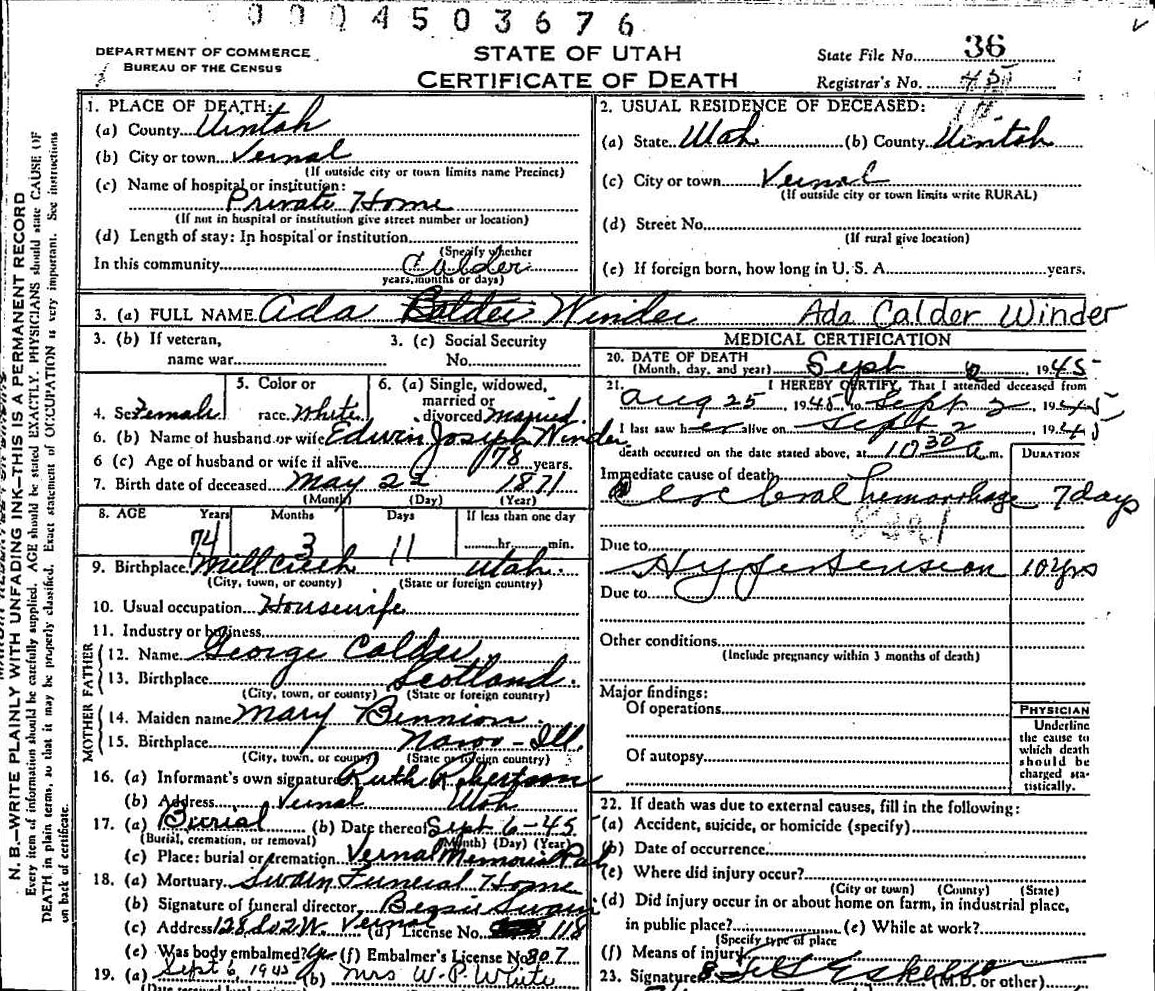 0004503676
DEPARTMENT OF COMMERCE
BUREAU OF THE CENSUS
STATE OF UTAH
CERTIFICATE OF DEATH
State File No. 36
Registrar's No.
N. B.—WRITE PLAINLY WITH UNFADING INK—THIS IS A PERMANENT RECORD
Every item of information should be carefully supplied. AGE should be stated EXACTLY. PHYSICIANS should state CAUSE OF
DEATH in plain terms, so that it may be properly classified. Exact statement of OCCUPATION is very important. See instructions
on back of certificate.
1. PLACE OF DEATH:
(a) County Uintah
(b) City or town Vernal
(If outside city or town limits name Precinct)
(c) Name of hospital or institution:
Private Home
(If not in hospital or institution give street number or location)
(d) Length of stay: In hospital or institution
(Specify whether
In this community
years, months or days)
2. USUAL RESIDENCE OF DECEASED:
(a) State Utah (b) County Uintah
(c) City or town Vernal
(If outside city or town limits write RURAL)
(d) Street No.
(If rural give location)
(e) If foreign born, how long in U. S. A. years.
Calder
3. (a) FULL NAME Ada Calder Winder Ada Calder Winder
3. (b) If veteran,
name war
3. (c) Social Security
No.
4. Sex Female
5. Color or
race White
6. (a) Single, widowed,
married or
divorced Married
6. (b) Name of husband or wife Edwin Joseph Winder
6 (c) Age of husband or wife if alive 78 years.
7. Birth date of deceased May 22 1871
(Month) (Day) (Year)
8. AGE Years Months Days If less than one day
74 3 11 hr. min.
9. Birthplace Mill Creek Utah.
(City, town, or county) (State or foreign country)
10. Usual occupation Housewife
11. Industry or business
FATHER
12. Name George Calder
13. Birthplace Scotland.
(City, town, or county) (State or foreign country)
MOTHER
14. Maiden name Mary Bennion.
15. Birthplace Navoo - Ill.
(City, town, or county) (State or foreign country)
16. (a) Informant's own signature Ruth Robertson
(b) Address Vernal Utah
17. (a) Burial (b) Date thereof Sept 6-45
(Burial, cremation, or removal) (Month) (Day) (Year)
(c) Place: burial or cremation Vernal Memorial Park
18. (a) Mortuary Swain Funeral Home
(b) Signature of funeral director Bessie Swain
(c) Address 128 So 2 W. Vernal (d) License No. 118
(e) Was body embalmed? Yes (f) Embalmer's License No. 307
19. (a) Sept 6, 1945 (b) Mrs W. P. White
MEDICAL CERTIFICATION
20. DATE OF DEATH
(Month, day, and year) Sept 2 1945
21. I HEREBY CERTIFY, That I attended deceased from
Aug 25, 1945 to Sept 2, 1945
I last saw her alive on Sept 2 1945
death occurred on the date stated above, at 10 30 A. m.
DURATION
Immediate cause of death
Cerebral hemorrhage 7 days
Due to
Hypertension 10 yrs
Due to
Other conditions
(Include pregnancy within 3 months of death)
Major findings:
Of operations
Of autopsy
PHYSICIAN
Underline
the cause to
which death
should be
charged sta-
tistically.
22. If death was due to external causes, fill in the following:
(a) Accident, suicide, or homicide (specify)
(b) Date of occurrence
(c) Where did injury occur?
(City or town) (County) (State)
(d) Did injury occur in or about home on farm, in industrial place,
in public place? (e) While at work?
(Specify type of place
(f) Means of injury
23. Signature (M.D. or other)